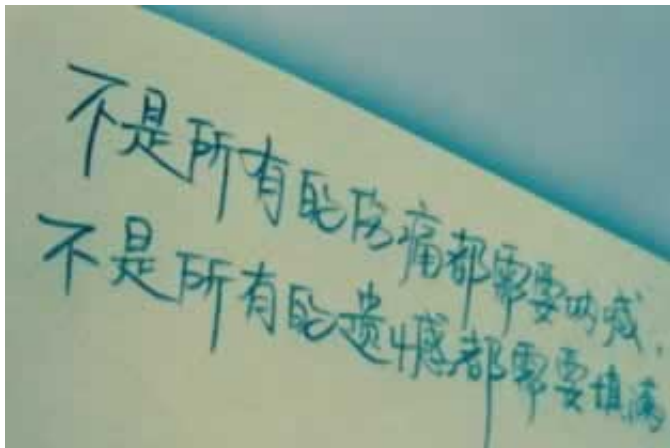 不是所有的伤痛都需要呐喊，
不是所有的遗憾都需要填满